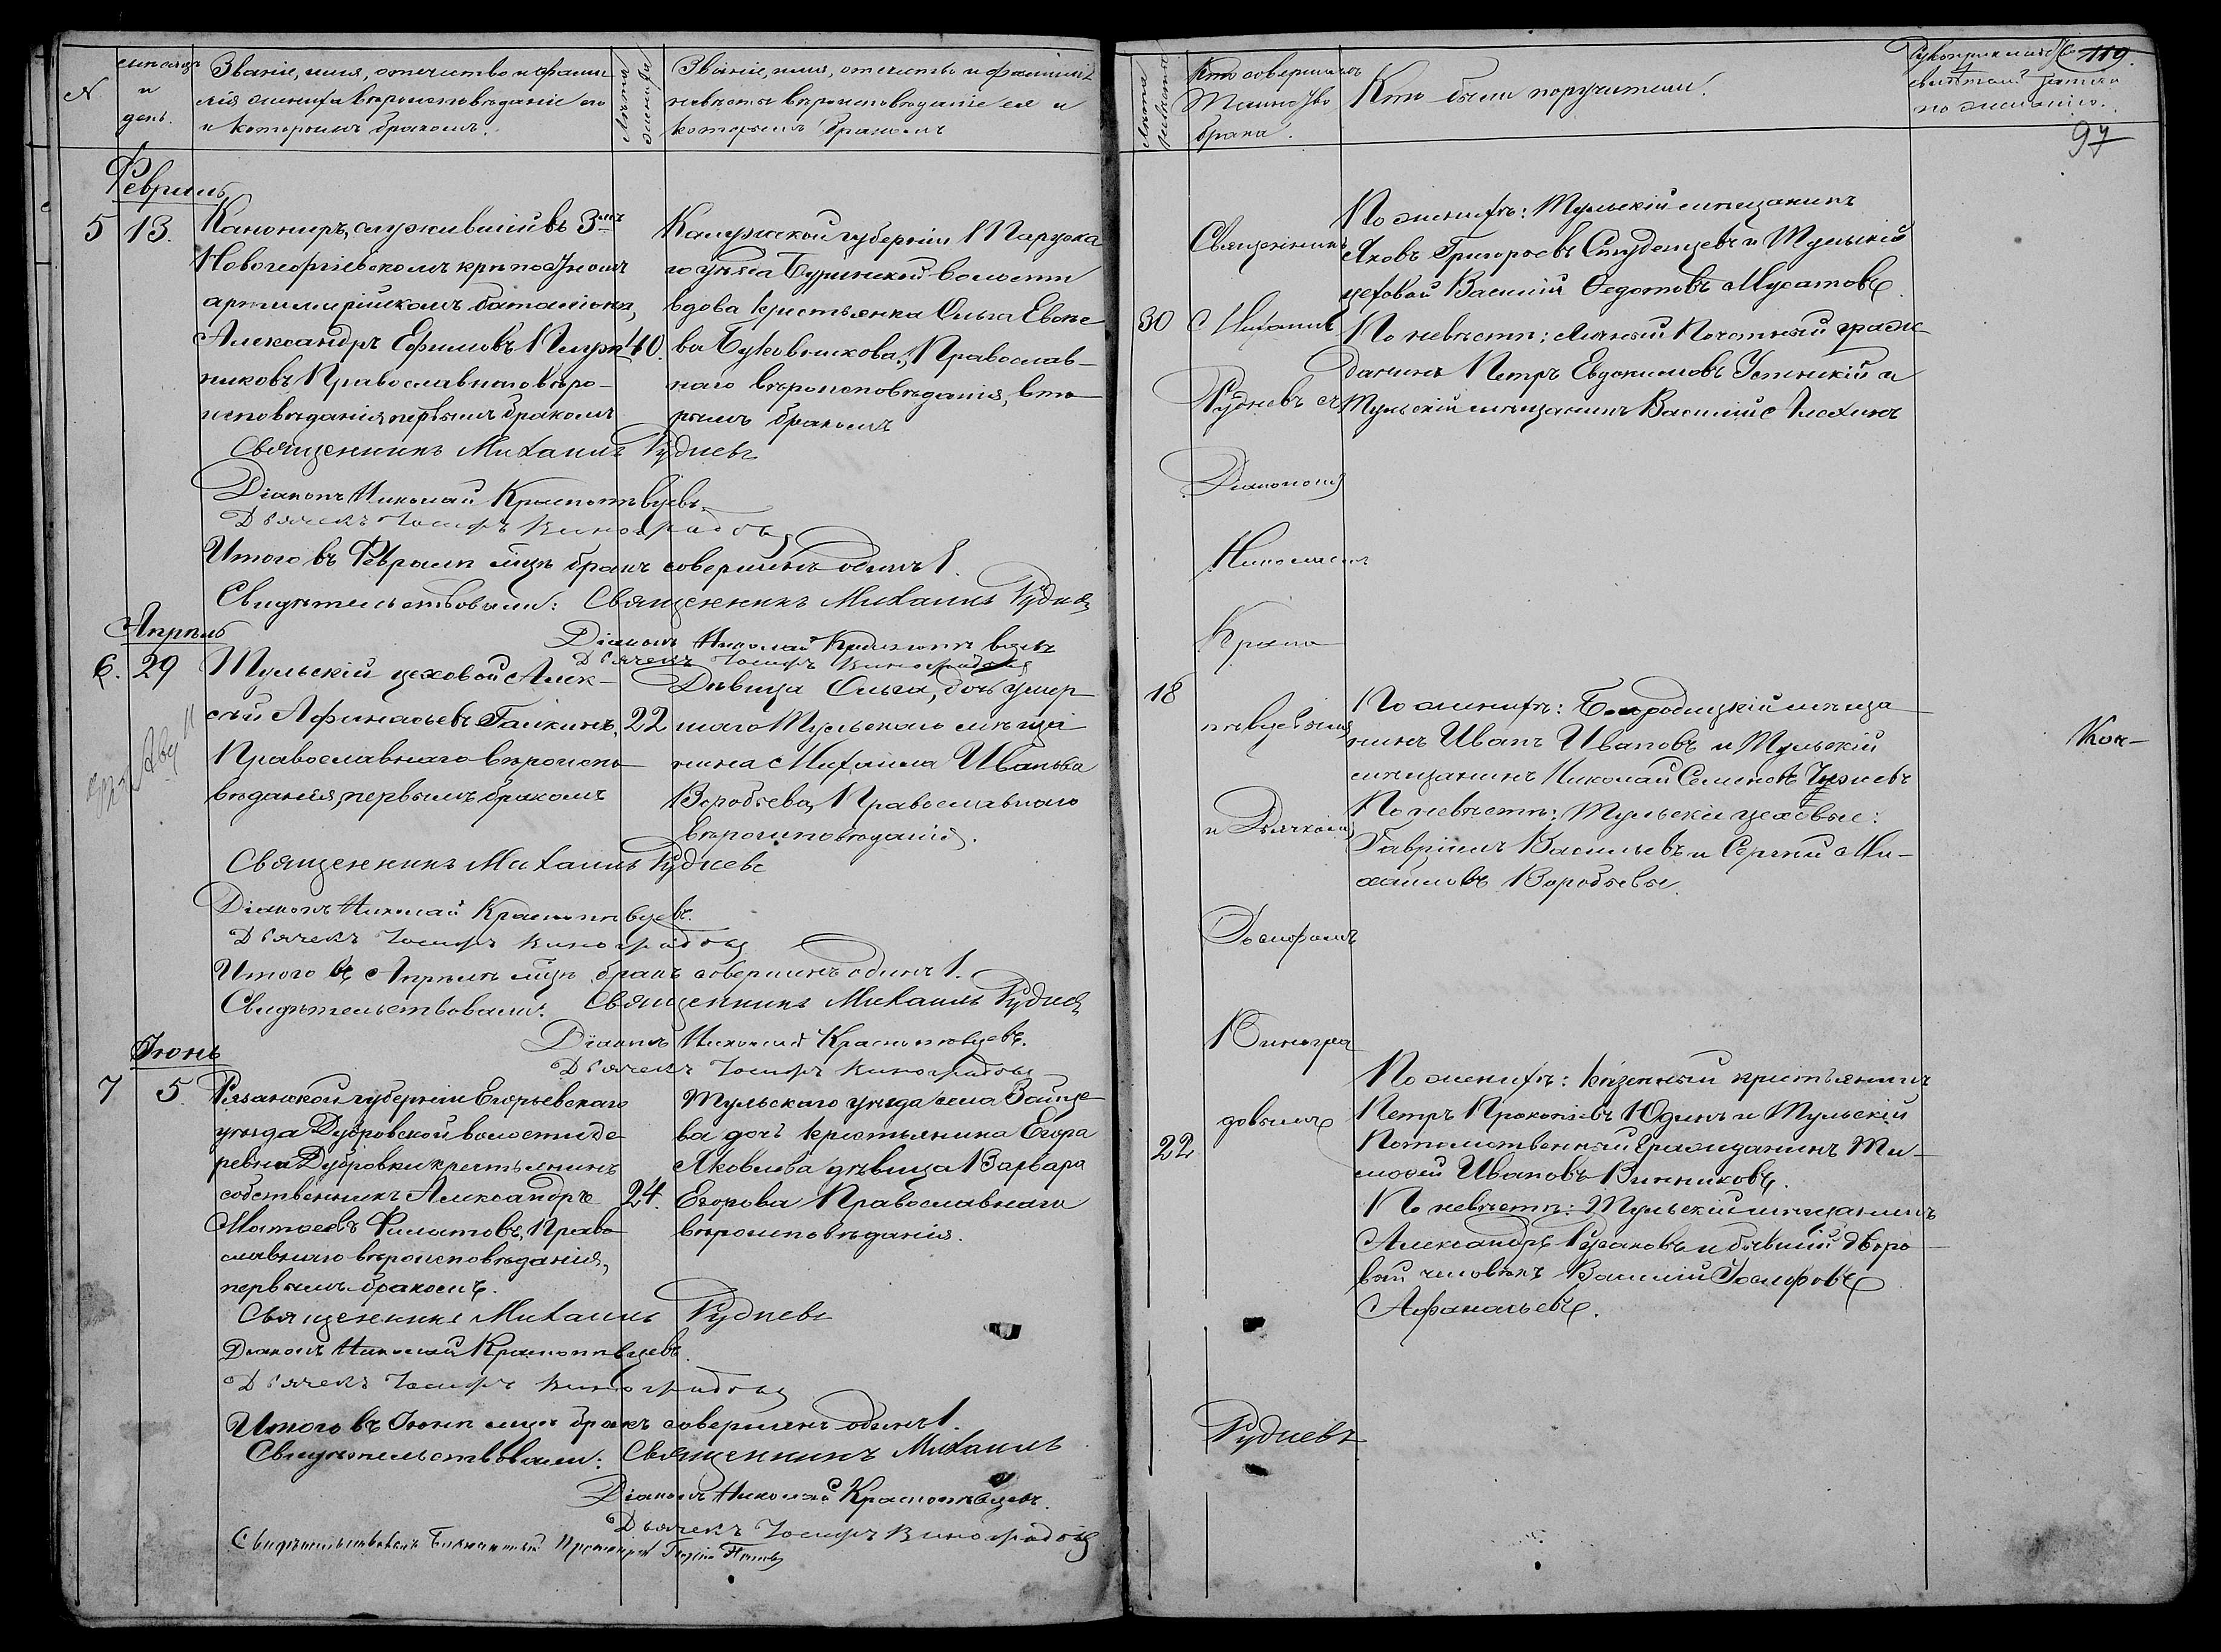 N
мѣсяцъ
и
день.
Званіе, имя, отечество и фами-
лія жениха вѣроисповѣданіе его
и которымъ бракомъ.
Лѣта
жениха
Званіе, имя, отечество и фамилія
невѣсты вѣроисповѣданіе ея и
которымъ бракомъ
Февраль
5
13.
Канониръ, служившій въ 3мъ
Новогеоргіевскомъ крѣпостномъ
артиллерійскомъ баталіонѣ,
Александръ Ефимовъ
никовъ Православнаго вѣро-
исповѣданія первымъ бракомъ
40.
Калужской губерніи
го уѣзда волости
вдова крестьянка Ольга
ва Православ-
наго вѣроисповѣданія, вто-
рымъ бракомъ
Священникъ Михаилъ Рудневъ
Діаконъ Николай Краснопѣвцевъ.
Дьячекъ Іосифъ Виноградовъ
Итого въ Февралѣ мцѣ бракъ совершенъ одинъ 1.
Свидѣтельствовали: Священникъ Михаилъ Рудневъ
Діаконъ Николай Краснопѣвцевъ
Дьячекъ Іосифъ Виноградовъ
Апрѣль
6.
29
Тульскій цеховой Алек-
сѣй Афанасьевъ Галкинъ,
Православнаго вѣроиспо-
вѣданія, первымъ бракомъ
22
Дѣвица Ольга, дочь умер-
шаго Тульскаго мѣща-
нина Михаила Иванова
Воробьева, Православнаго
вѣроисповѣданія.
Священникъ Михаилъ Рудневъ
Діаконъ Николай Краснопѣвцевъ.
Дьячекъ Іосифъ Виноградовъ
Итого въ Апрѣлѣ мцѣ бракъ совершенъ одинъ 1.
Свидѣтельствовали: Священникъ Михаилъ Рудневъ
Діаконъ Николай Краснопѣвцевъ.
Дьячекъ Іосифъ Виноградовъ
Іюнь
7
5.
Рязанской губерніи Егорьевскаго
уѣзда Дубровской волости де-
ревни Дубровки крестьянинъ
собственникъ Александръ
Матвеевъ Филатовъ, Право-
славнаго вѣроисповѣданія,
первымъ бракомъ.
24.
Тульскаго уѣзда села Зайце-
ва дочь крестьянина Егора
Яковлева дѣвица Варвара
Егорова Православнаго
вѣроисповѣданія.
Священникъ Михаилъ Рудневъ
Діаконъ Николай Краснопѣвцевъ.
Дьячекъ Іосифъ Виноградовъ
Итого въ Іюнѣ мцѣ бракъ совершенъ одинъ 1.
Свидѣтельствовали: Священникъ Михаилъ
Діаконъ Николай Краснопѣвцевъ.
Дьячекъ Іосифъ Виноградовъ
Свидѣтельствовалъ Благочинный
Лѣта
невѣсты
Кто совершалъ
Таинство
брака.
Кто были поручители.
свидѣтелей
по желанію.
119.
97
30
18
22
Священникъ
Михаилъ
Рудневъ съ
Діакономъ
Николаемъ
Красно-
пѣвцевымъ
и Дьячкомъ
Іосифомъ
Виногра-
довымъ
Рудневъ
По женихѣ: Тульскій мѣщанинъ
Яковъ Григорьевъ Студенцевъ и Тульскій
цеховой Василій Федотовъ Мусатовъ.
По невѣстѣ: Личный Почетный граж-
данинъ Петръ Евдокимовъ Успенскій и
Тульскій мѣщанинъ Василій Алехинъ
По женихѣ: Богородицкій мѣща-
нинъ Иванъ Ивановъ и Тульскій
мѣщанинъ Николай Семеновъ
По невѣстѣ: Тульскіе цеховые:
Гавріилъ Васильевъ и Сергѣй Ми-
хайловъ Воробьевы.
Кон-
По женихѣ: Казенный крестьянинъ
Петръ Прокопіевъ Юдинъ и Тульскій
Потомственный Гражданинъ Ти-
моѳей Ивановъ Винниковъ.
По невѣстѣ: Тульскій мѣщанинъ
Александръ Русаковъ и бывшій дворо-
вый человѣкъ Василій Іосифовъ
Афанасьевъ.